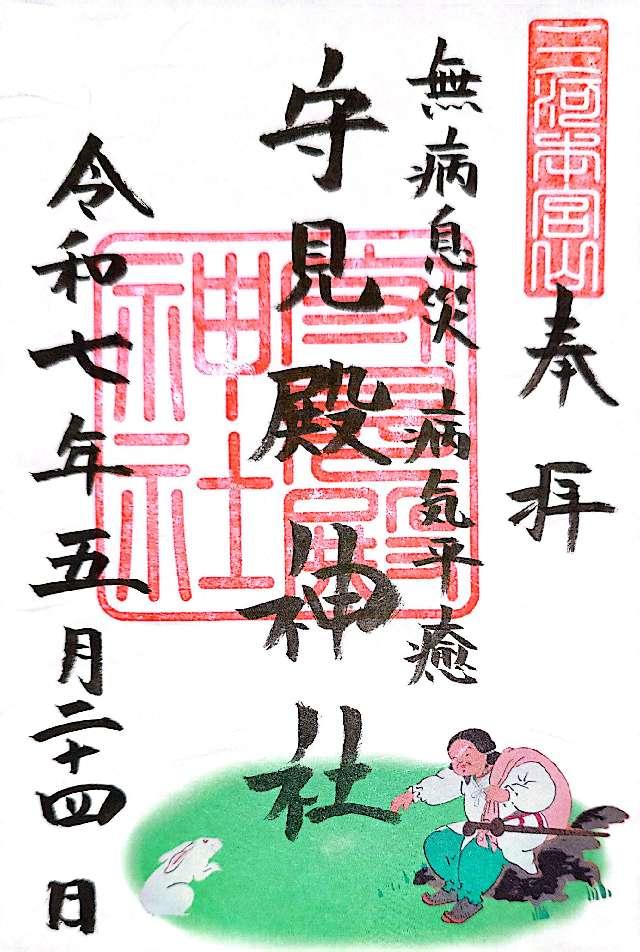 三河本宮山
奉拝
無病息災 病気平癒
守見殿神社
守見殿神社
令和七年五月二十四日